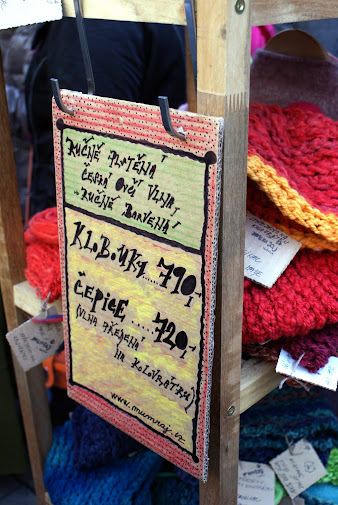 RUČNĚ PLETENÁ
ČESKÁ OVČÍ VLNA,
RUČNĚ BARVENÁ!
KLOBOUKY.....790,-
ČEPICE.....720,-
(VLNA PŘEDENÁ
NA KOLOVRÁTKU)
www.mumraj.cz